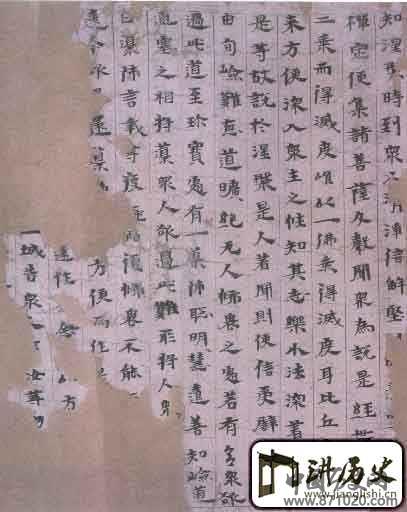 知涅槃時到眾又清淨信解堅
禪定便集諸菩薩及聲聞眾為說是經世
二乘而得滅度唯以一佛乘得滅度耳比丘
來方便深入眾生之性知其志樂小法深著
是等故說於涅槃是人若聞則便信受譬
由旬險難惡道曠絕无人怖畏之處若有多眾欲
過此道至珍寶處有一導師聰明慧達善知險道
通塞之相將導眾人欲過此難所將人眾
白導師言我等疲極復怖畏不能
遠今欲退還導
方便而作
方
城告眾 汝等勿
讲历史
www.jiangjishi.cn
www.871020.com